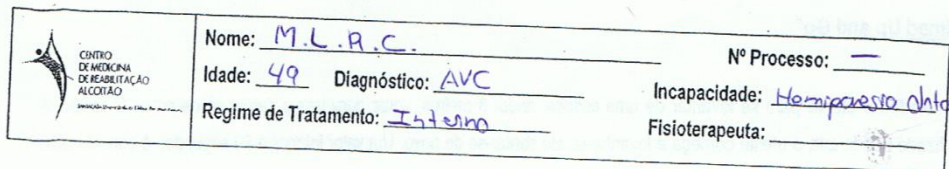 CENTRO
DE MEDICINA
DE REABILITAÇÃO
ALCOITÃO
Nome: M.L.R.C.
Nº Processo: —
Idade: 49 Diagnóstico: AVC
Incapacidade: Hemiparesia dnta
Regime de Tratamento: Interno
Fisioterapeuta: